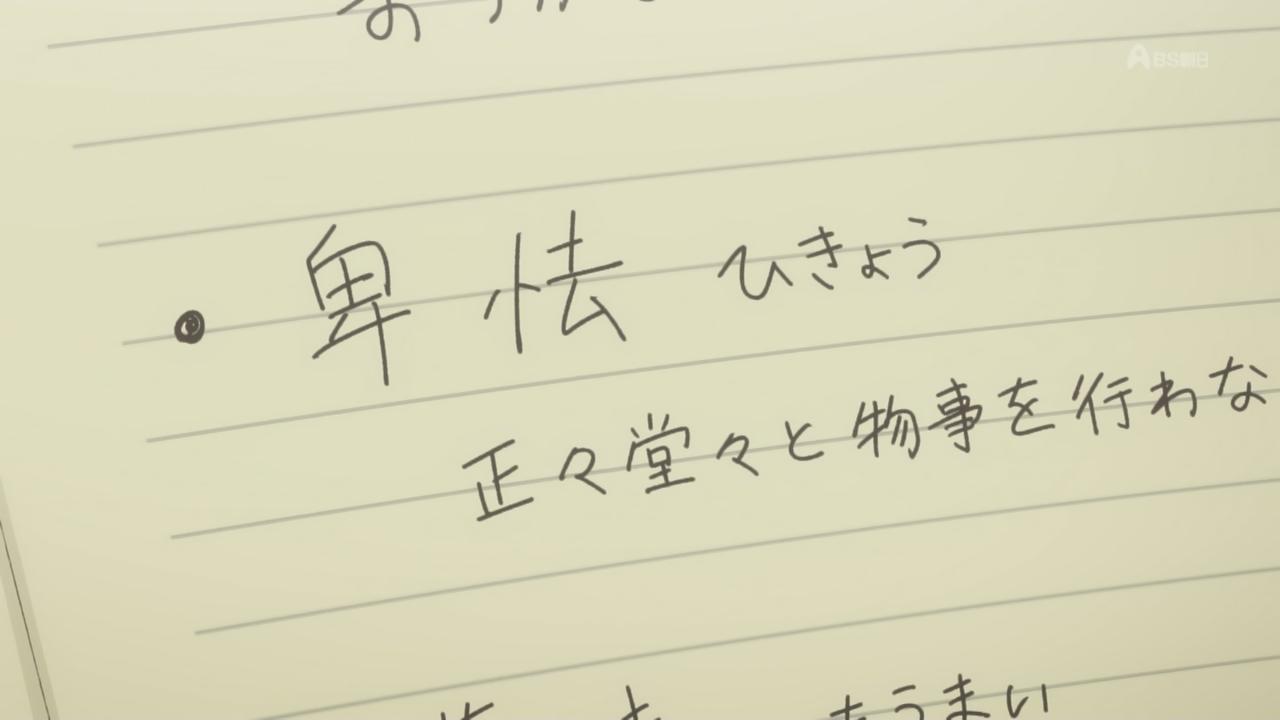 BS朝日
・卑怯 ひきょう
正々堂々と物事を行わな